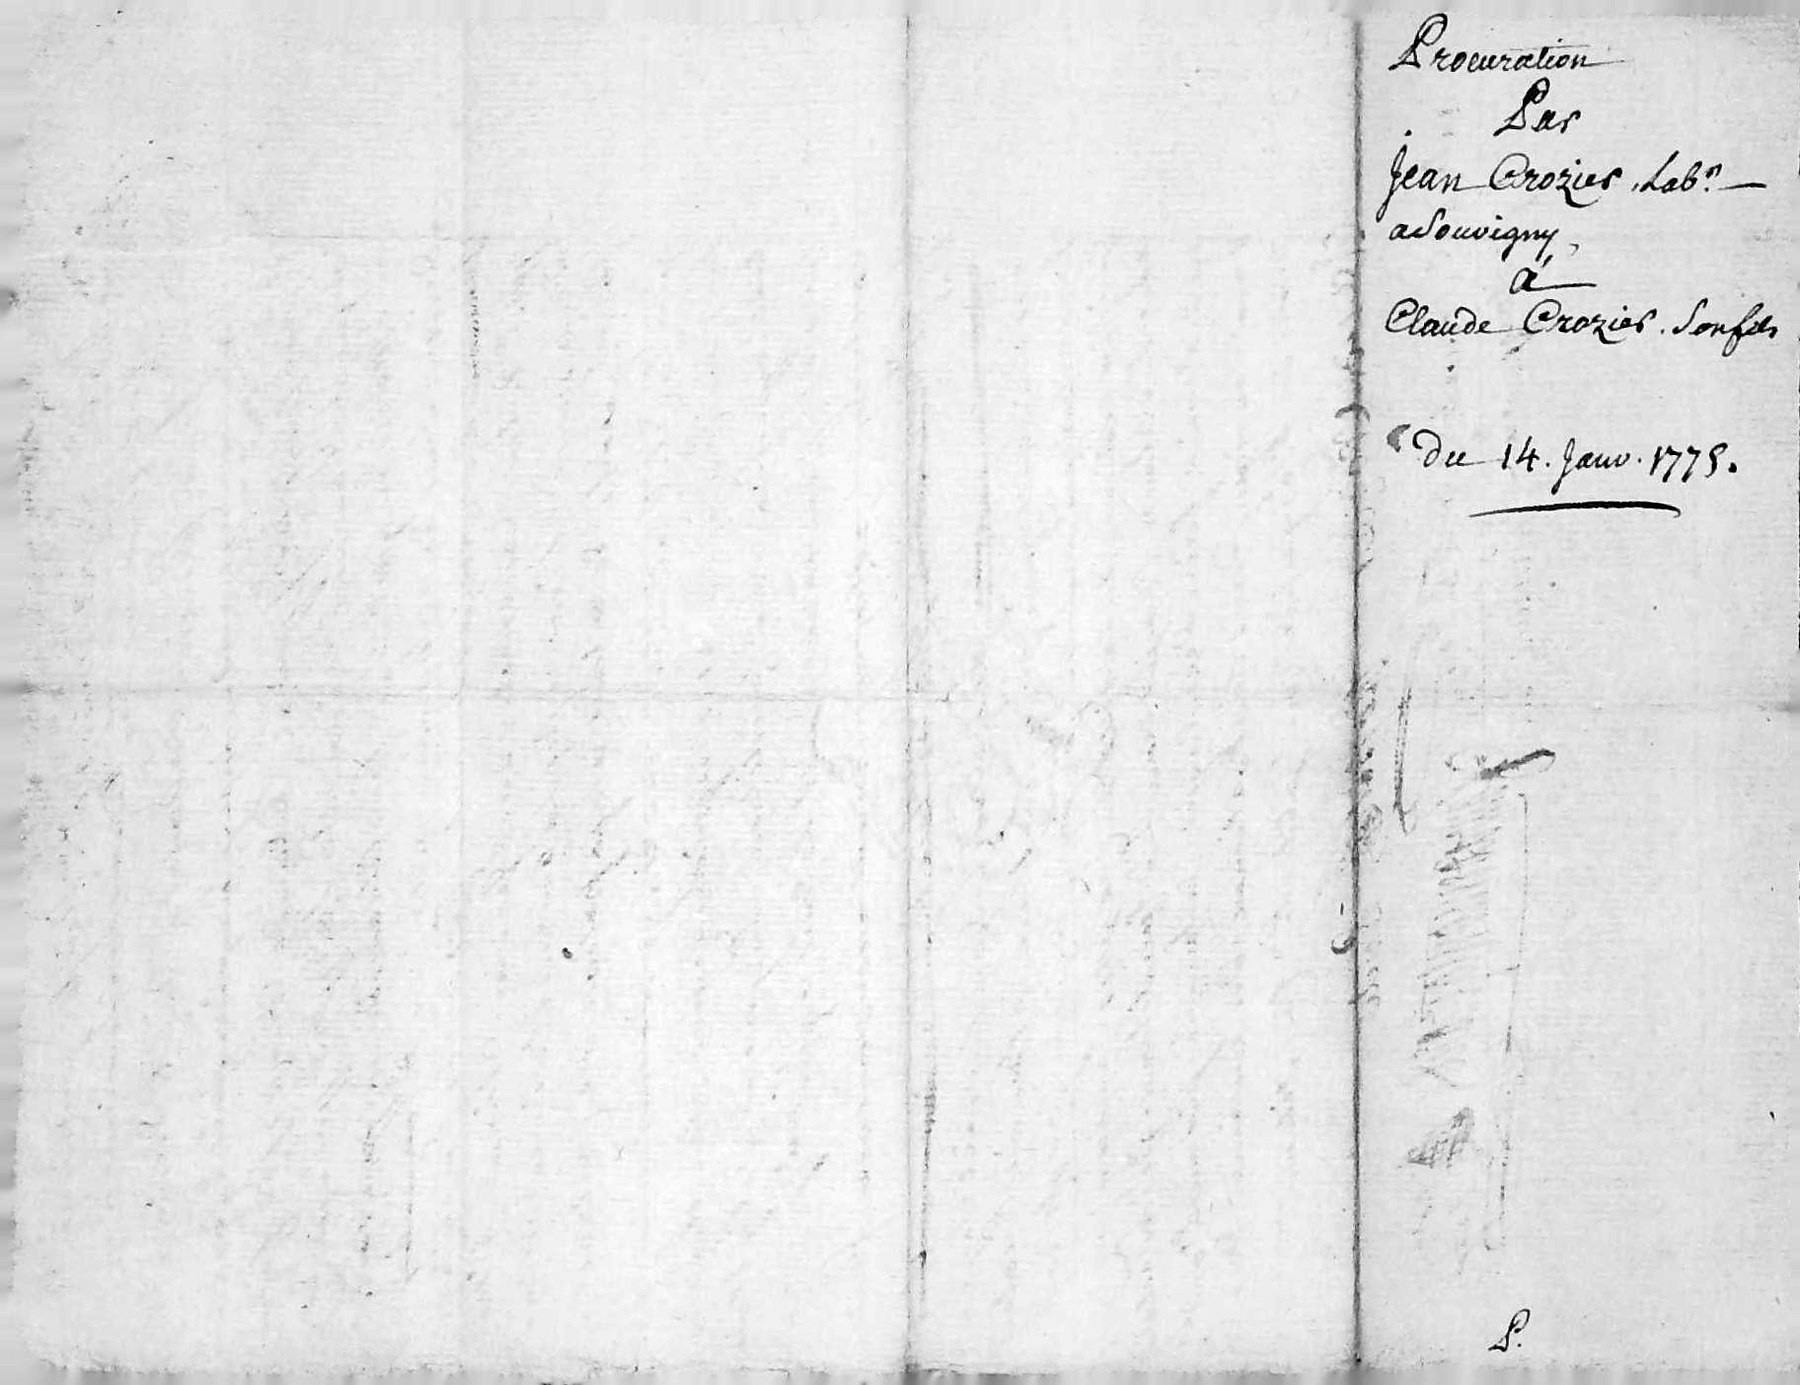 Procuration
Par
Jean Crozier Labr. —
a Souvigny,
à
Claude Crozier. Son fils
du 14. Janv. 1775.
P.